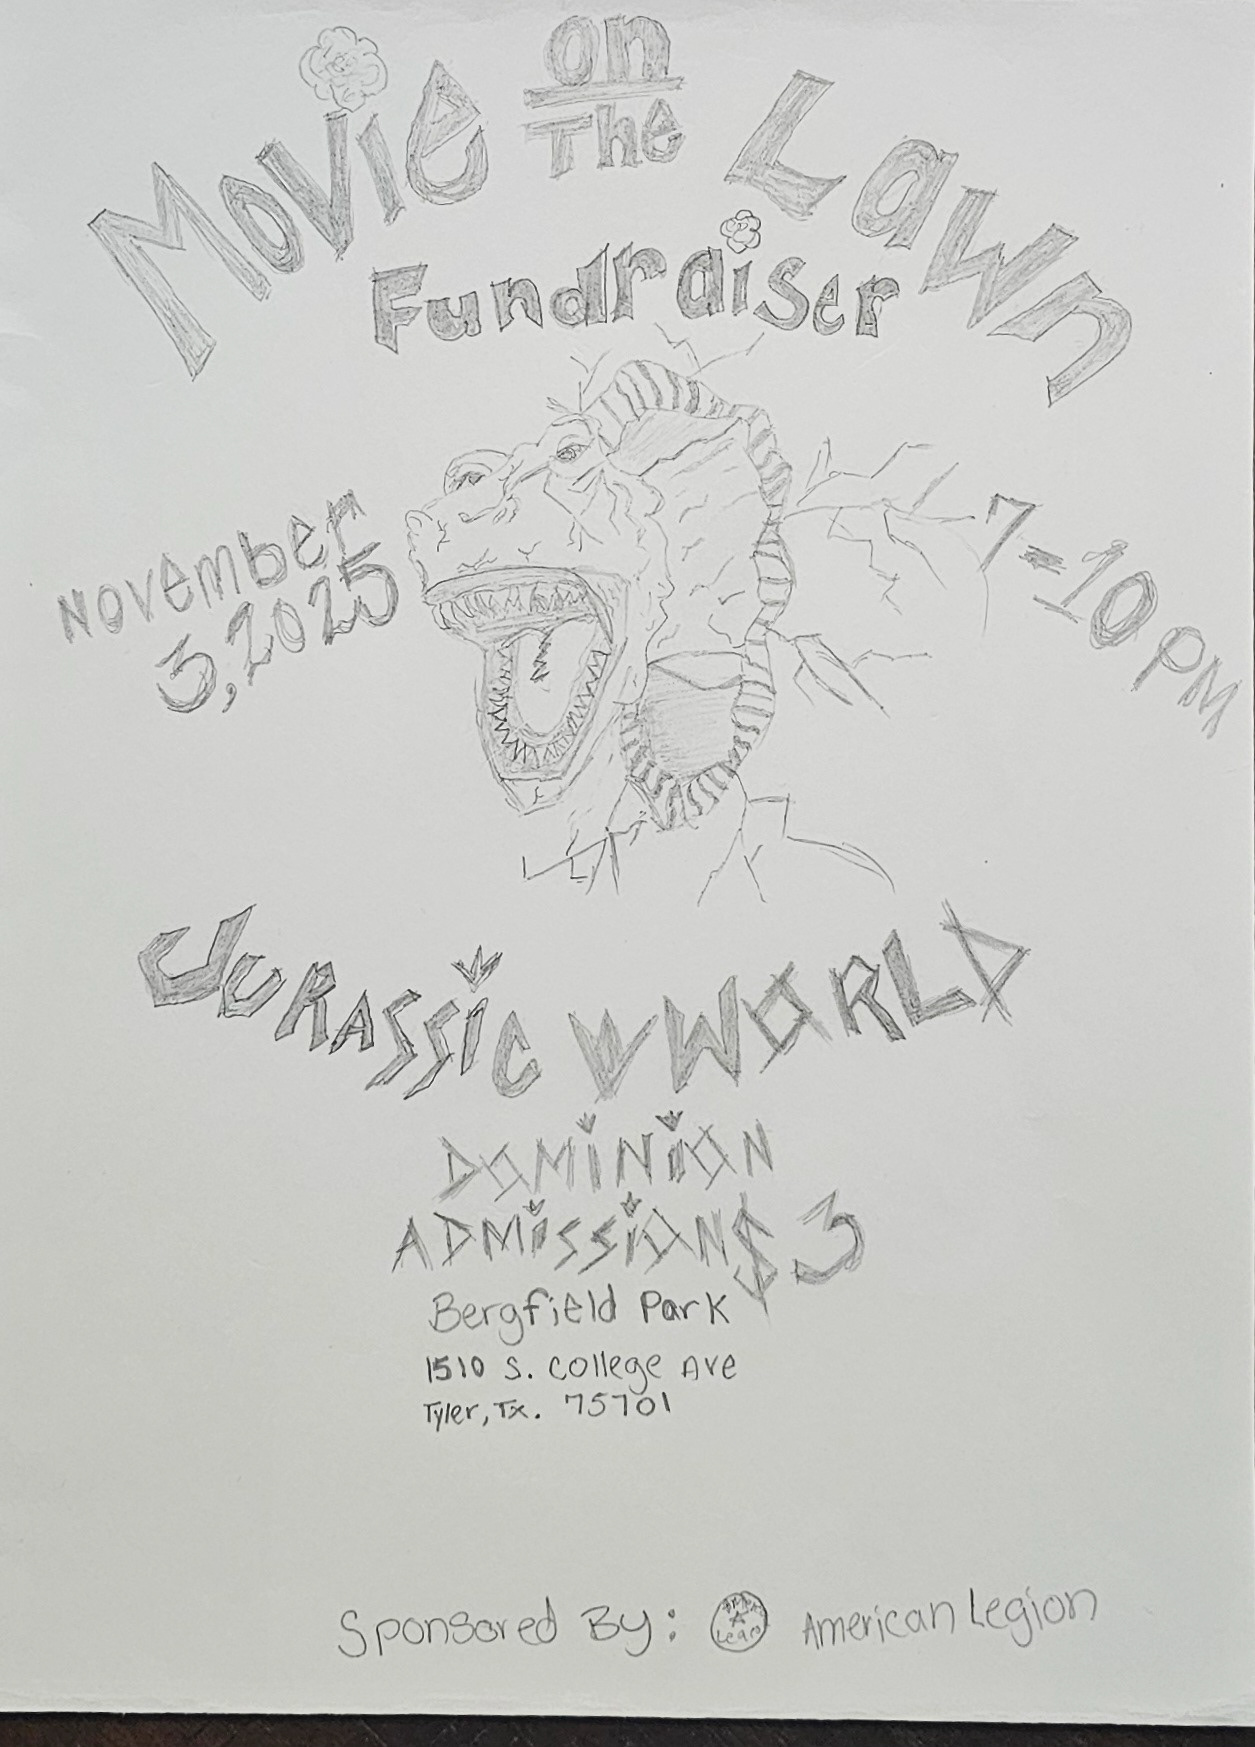 Movie on The Lawn
Fundraiser
November 3, 2025
7-10 PM
JURASSiC WORLD
DOMiNiON
ADMiSSiONS $3
Bergfield Park
1510 S. College Ave
Tyler, Tx. 75701
Sponsored By: American Legion